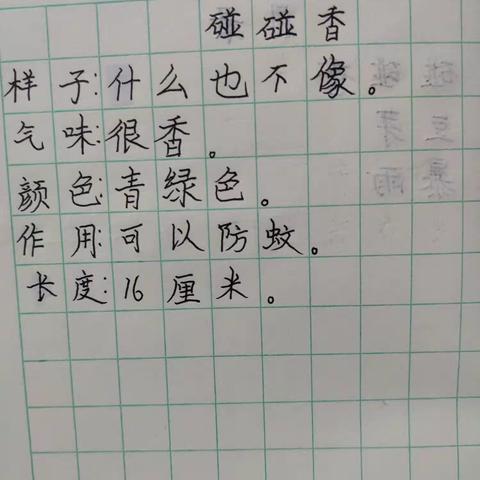 碰碰香
样子:什么也不像。
气味:很香。
颜色:青绿色。
作用:可以防蚊。
长度:16厘米。